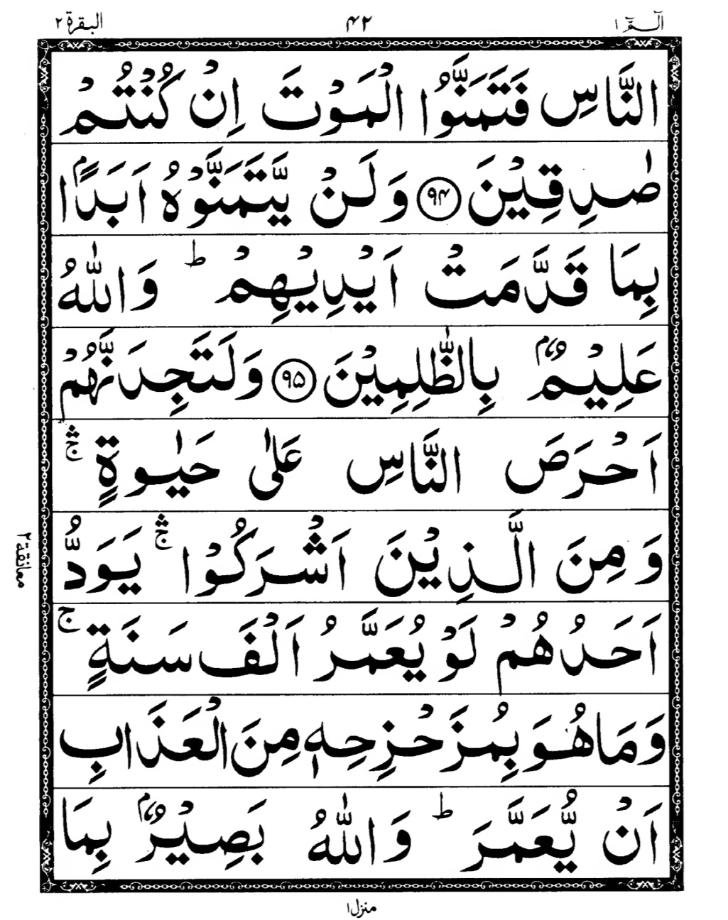 الٓمّٓ ۱ ۴۲ البقرة ۲
النَّاسِ فَتَمَنَّوُا الْمَوْتَ اِنْ كُنْتُمْ
صٰدِقِيْنَ ﴿۹۴﴾ وَلَنْ يَّتَمَنَّوْهُ اَبَدًۢا
بِمَا قَدَّمَتْ اَيْدِيْهِمْ ؕ وَاللّٰهُ
عَلِيْمٌۢ بِالظّٰلِمِيْنَ ﴿۹۵﴾ وَلَتَجِدَنَّهُمْ
اَحْرَصَ النَّاسِ عَلٰى حَيٰوةٍ ۛۚ
وَمِنَ الَّذِيْنَ اَشْرَكُوْا ۛۚ يَوَدُّ
اَحَدُهُمْ لَوْ يُعَمَّرُ اَلْفَ سَنَةٍ ۚ
وَمَا هُوَ بِمُزَحْزِحِهٖ مِنَ الْعَذَابِ
اَنْ يُّعَمَّرَ ؕ وَاللّٰهُ بَصِيْرٌۢ بِمَا
معانقة ۲
منزل ۱